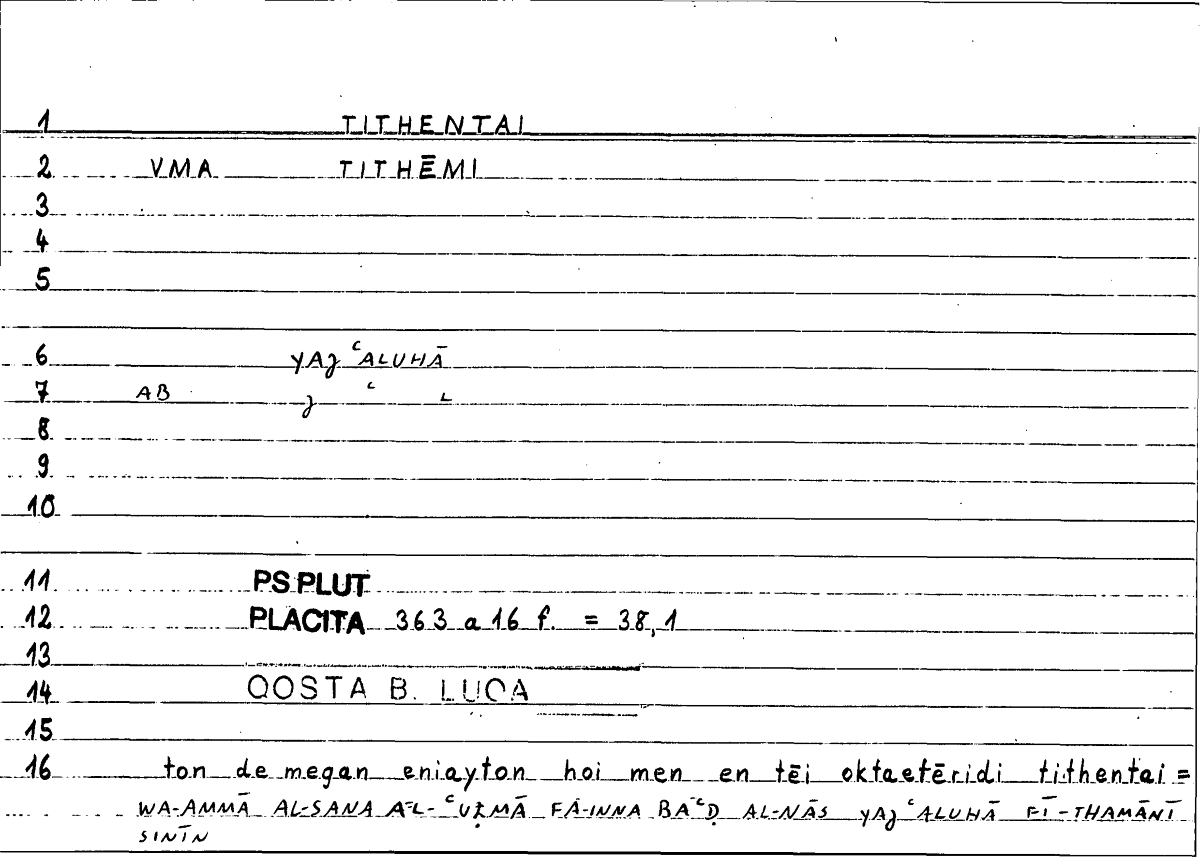 1 TITHENTAI
2 VMA TITHĒMI
3
4
5
6 YAJ ʿALUHĀ
7 AB J ʿ L
8
9
10
11 PS PLUT
12 PLACITA 363 a 16 f. = 38,1
13
14 QOSTA B. LUQA
15
16 ton de megan eniayton hoi men en tēi oktaetēridi tithentai =
WA-AMMĀ AL-SANA AL-ʿUẒMĀ FA-INNA BAʿḌ AL-NĀS YAJʿALUHĀ FĪ-THAMĀNĪ
SINĪN